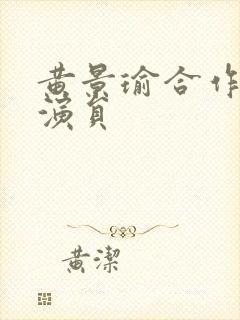 黄景瑜合作
演员
黄潔